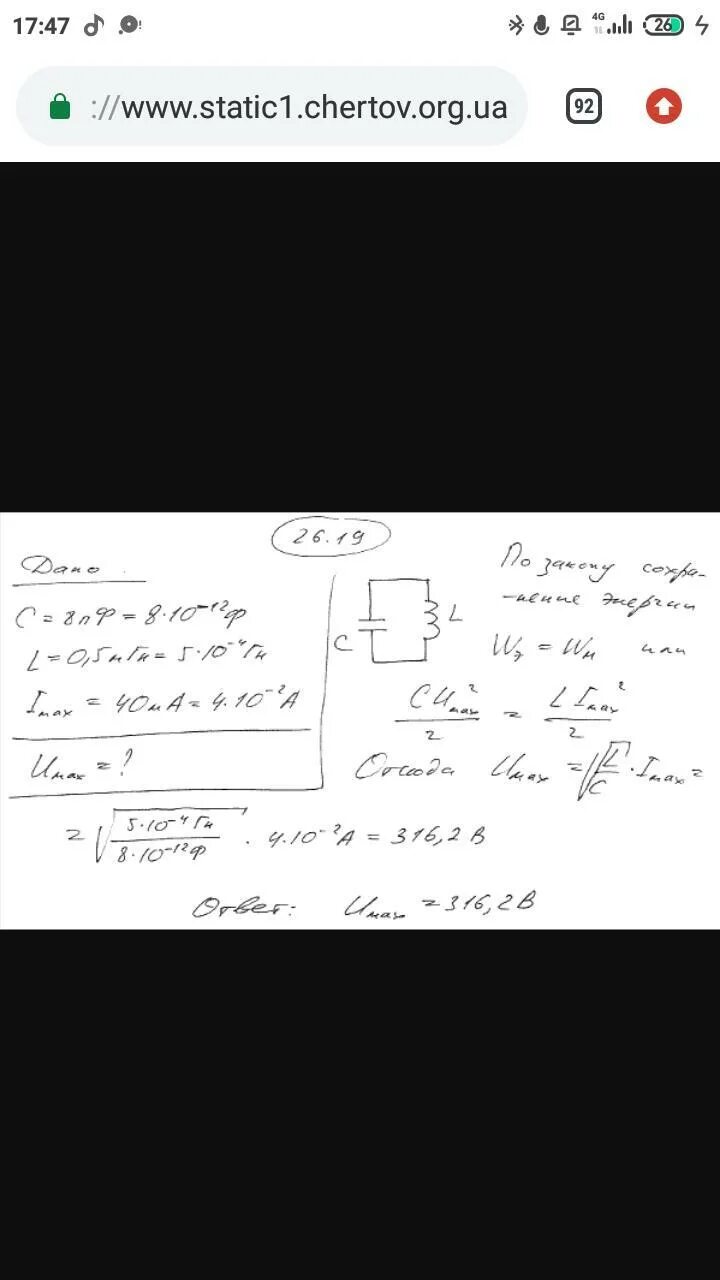 17:47 4G 26
://www.static1.chertov.org.ua 92
26.19
Дано
C = 8пФ = 8·10⁻¹²Ф
L = 0,5мГн = 5·10⁻⁴Гн
Imax = 40мА = 4·10⁻²А
Umax = ?
C L
По закону сохра-
-нение энергии
Wэ = Wм или
CUmax²/2 = LImax²/2
Отсюда Umax = √(L/C) · Imax =
= √(5·10⁻⁴Гн/8·10⁻¹²Ф) · 4·10⁻²А = 316,2 В
Ответ: Umax = 316,2 В